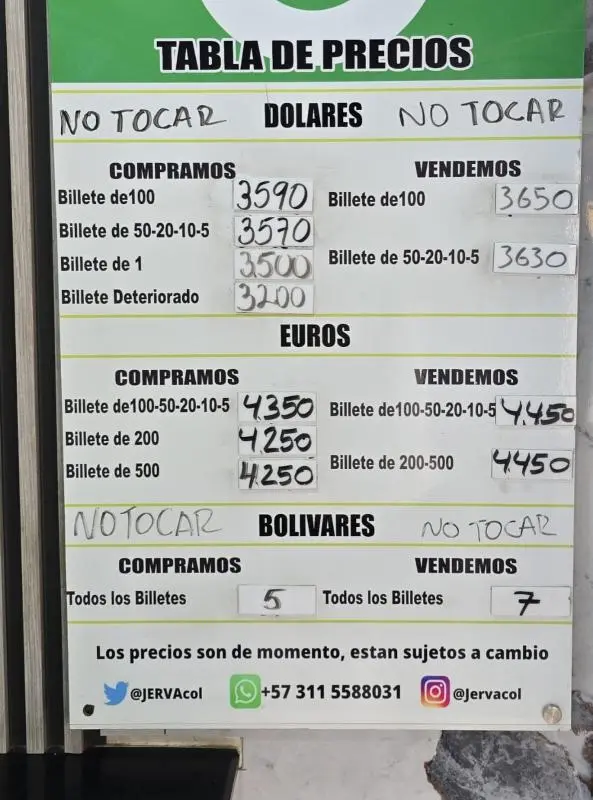 TABLA DE PRECIOS
NO TOCAR DOLARES NO TOCAR
COMPRAMOS VENDEMOS
Billete de100 3590 Billete de100 3650
Billete de 50-20-10-5 3570
Billete de 1 3500 Billete de 50-20-10-5 3630
Billete Deteriorado 3200
EUROS
COMPRAMOS VENDEMOS
Billete de100-50-20-10-5 4.350 Billete de100-50-20-10-5 4.450
Billete de 200 4.250
Billete de 500 4.250 Billete de 200-500 4.450
NO TOCAR BOLIVARES NO TOCAR
COMPRAMOS VENDEMOS
Todos los Billetes 5 Todos los Billetes 7
Los precios son de momento, estan sujetos a cambio
@JERVAcol +57 311 5588031 @Jervacol